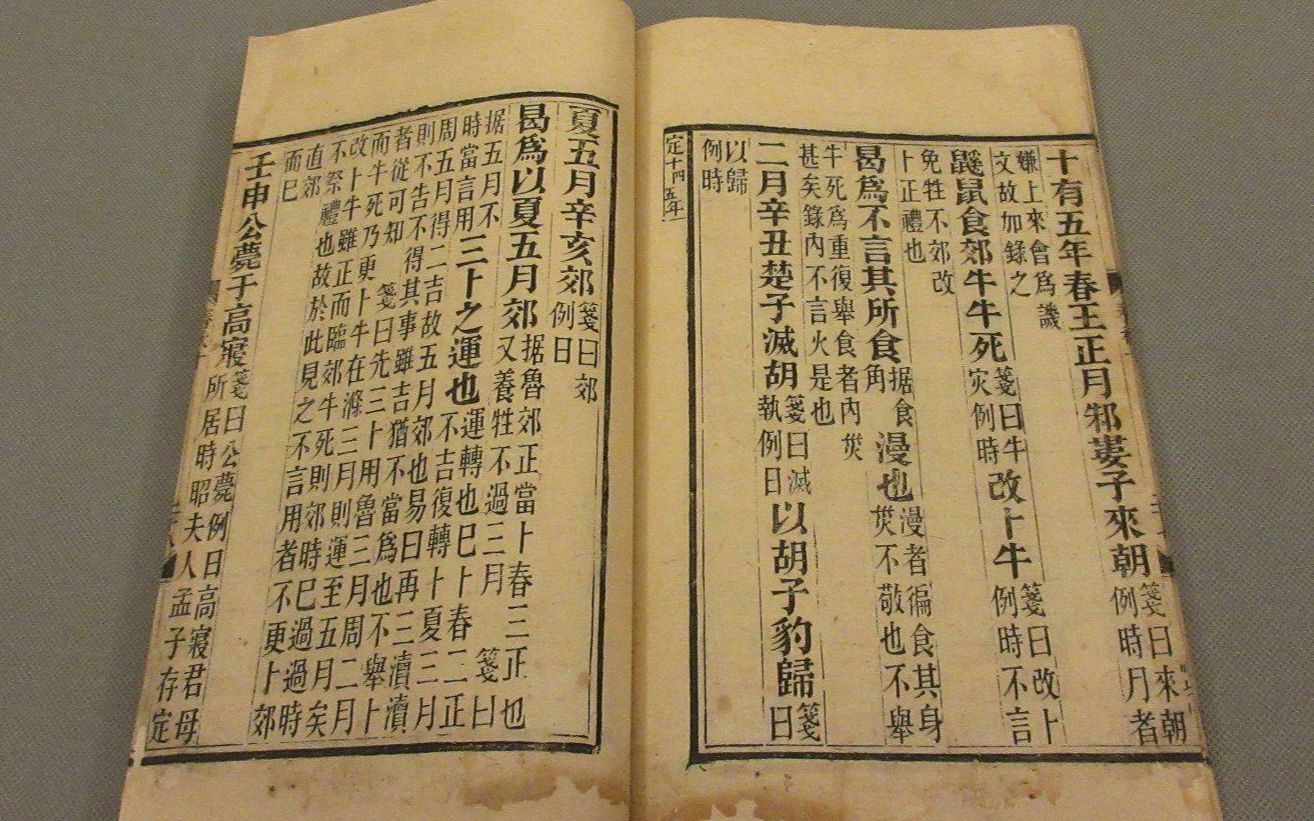 十有五年春王正月邾婁子來朝箋曰來朝例時月者
嫌上來會爲譏
文故加錄之
鼷鼠食郊牛牛死箋曰牛灾例時改卜牛箋曰改卜例時不言
免牲不郊改
卜正禮也
曷爲不言其所食据食角漫也漫者徧食其身烖不敬也不舉
牛死爲重復舉食者內烖
甚矣錄內不言火是也
二月辛丑楚子滅胡箋曰滅執例日以胡子豹歸箋曰
以歸
例時
定十四五年
夏五月辛亥郊箋曰郊例日
曷爲以夏五月郊据魯郊正當卜春三正也又養牲不過三月 箋曰
据五月不時當言用三卜之運也運轉也巳卜春三正不吉復轉卜夏三月
周五月得二吉故五月郊也易曰再三瀆瀆
則不告不得其事雖吉猶不當爲也不舉卜
者從可知 箋曰先三卜用魯三月周二月
而牛死乃更卜牛在滌三月則運至五月矣
改卜牛雖正而臨郊牛死則郊時巳過過時
不祭禮也故於此見之不言用者不更卜郊
直郊
而巳
壬申公薨于高寢箋曰公薨例日高寢君母所居時昭夫人孟子存定